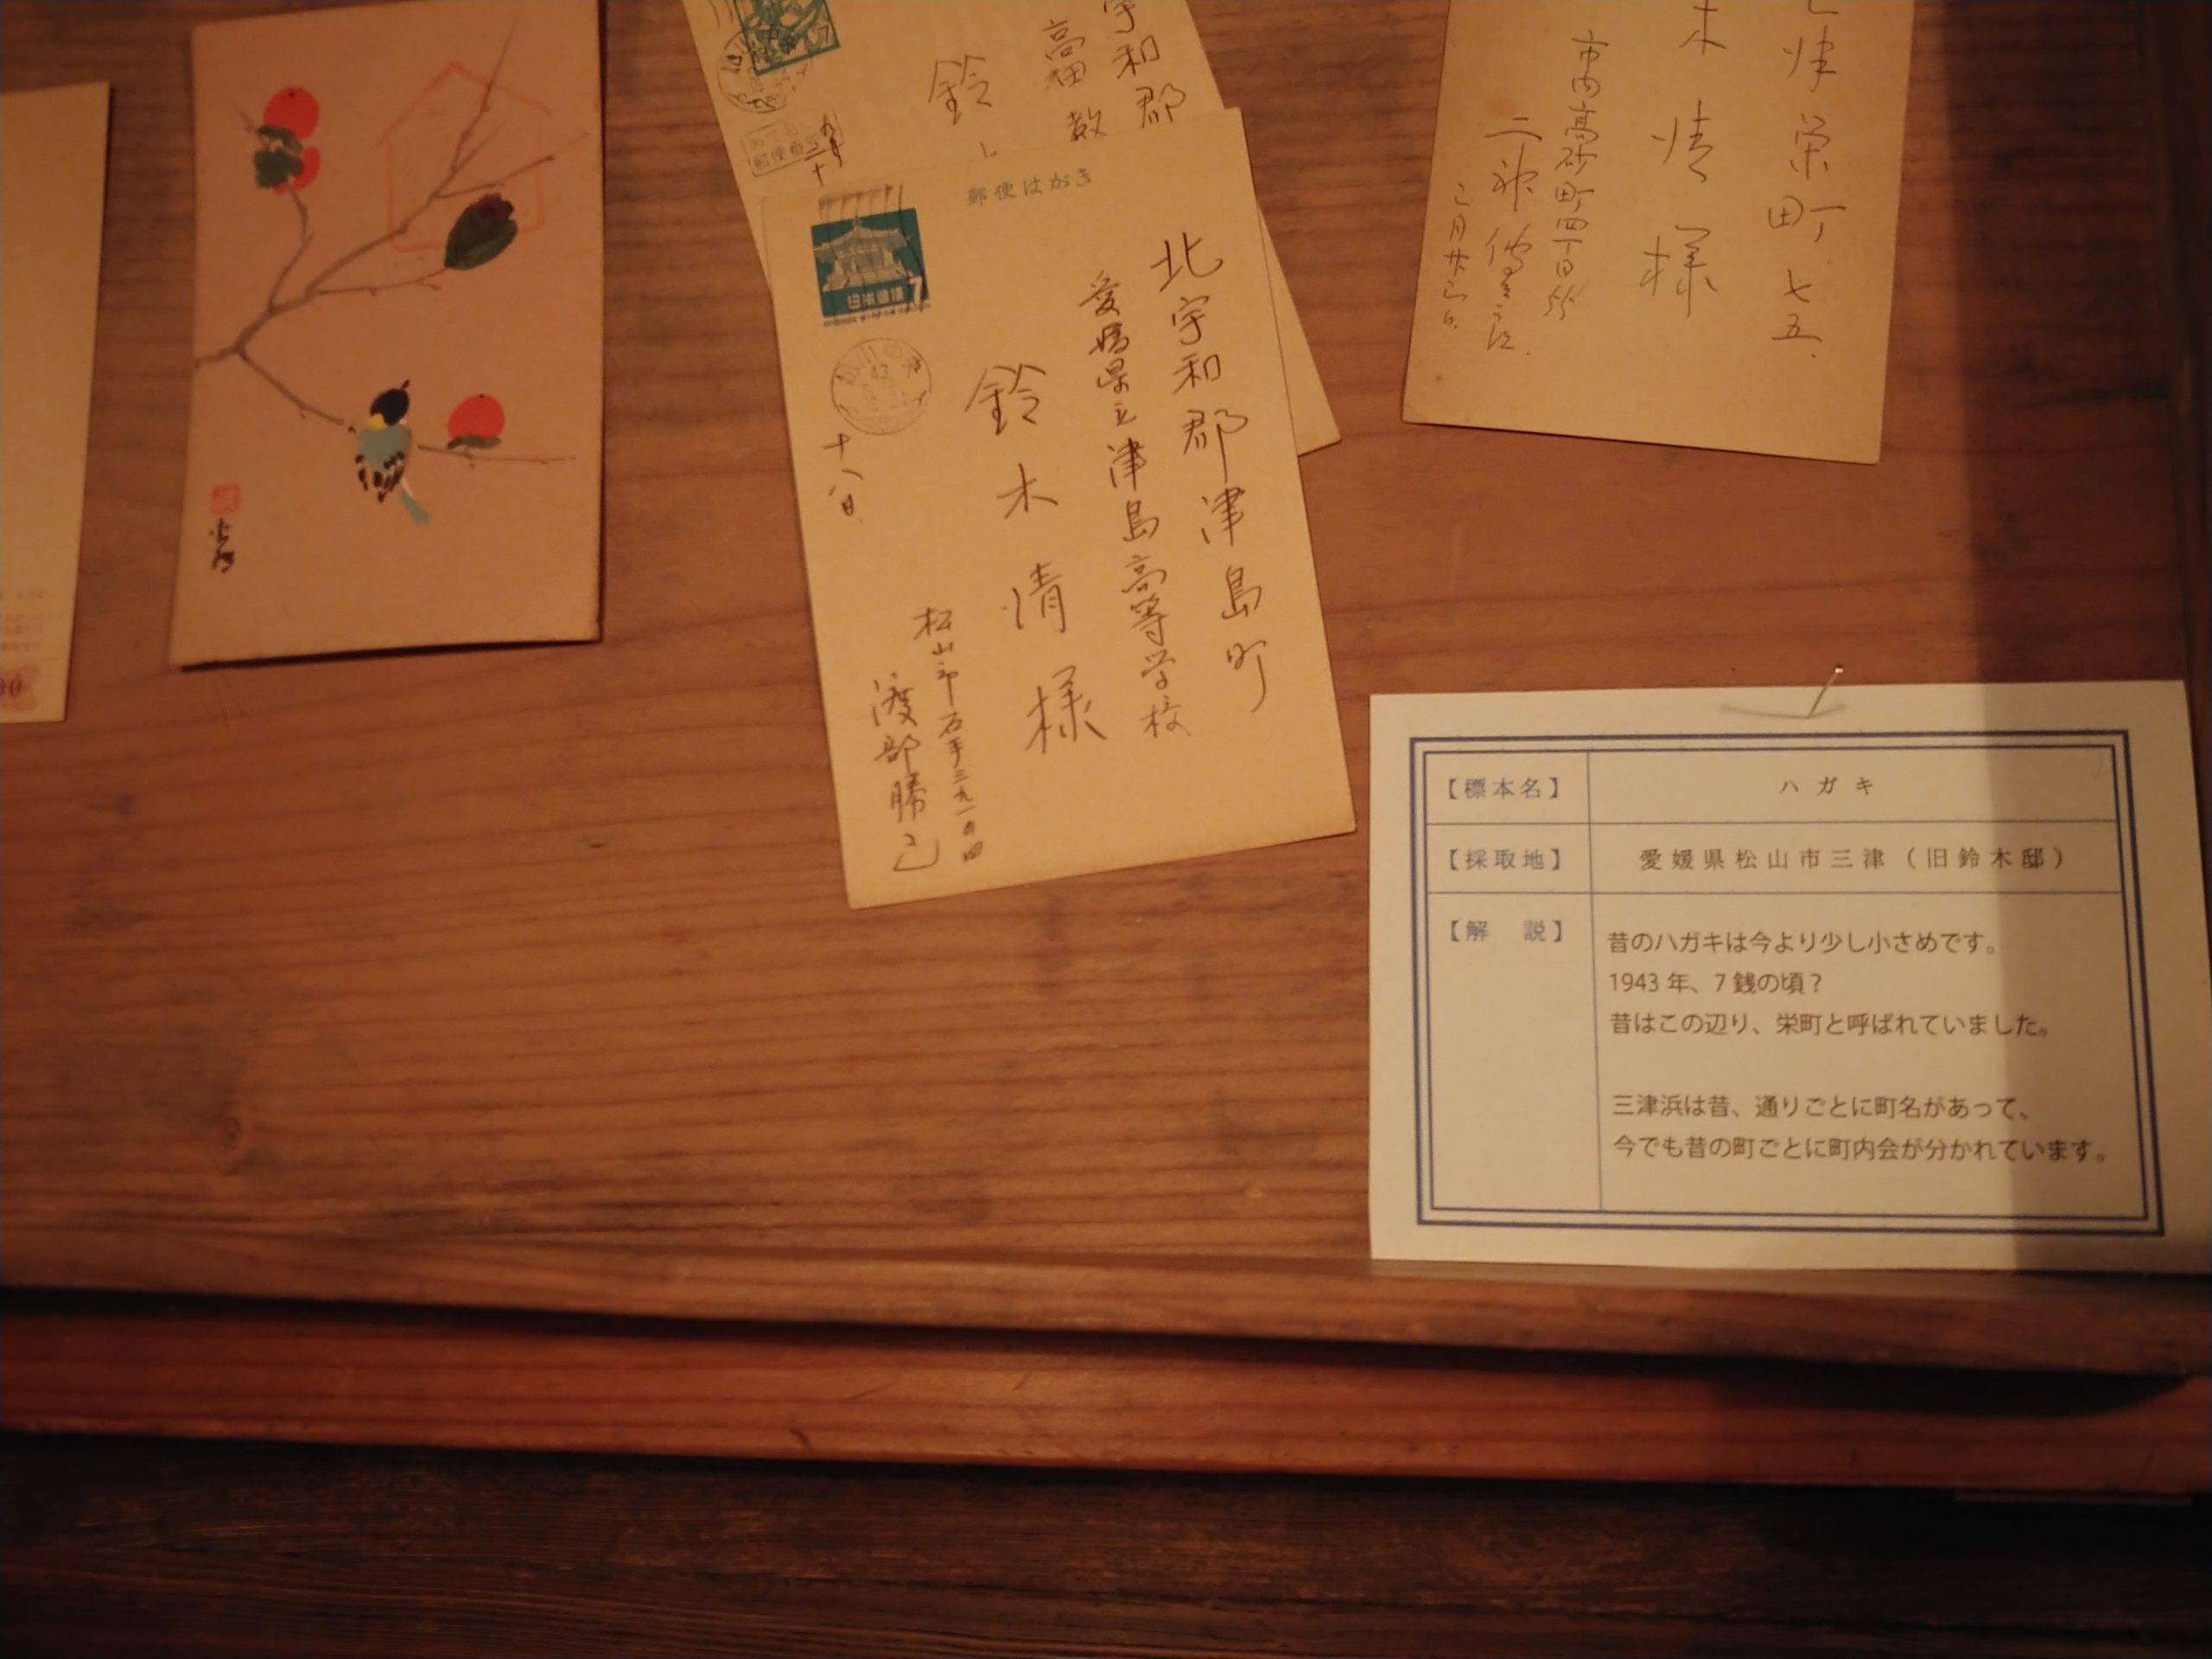 宇和郡
高田
鈴
郵便はがき
日本郵便
7
北宇和郡津島町
愛媛県立津島高等学校
鈴木清様
十八日
松山市石手三九一の四
渡部勝己
津栄町七五
木清様
市内高砂町四丁目
【標本名】 ハガキ
【採取地】 愛媛県松山市三津（旧鈴木邸）
【解 説】 昔のハガキは今より少し小さめです。
1943年、7銭の頃？
昔はこの辺り、栄町と呼ばれていました。
三津浜は昔、通りごとに町名があって、
今でも昔の町ごとに町内会が分かれています。